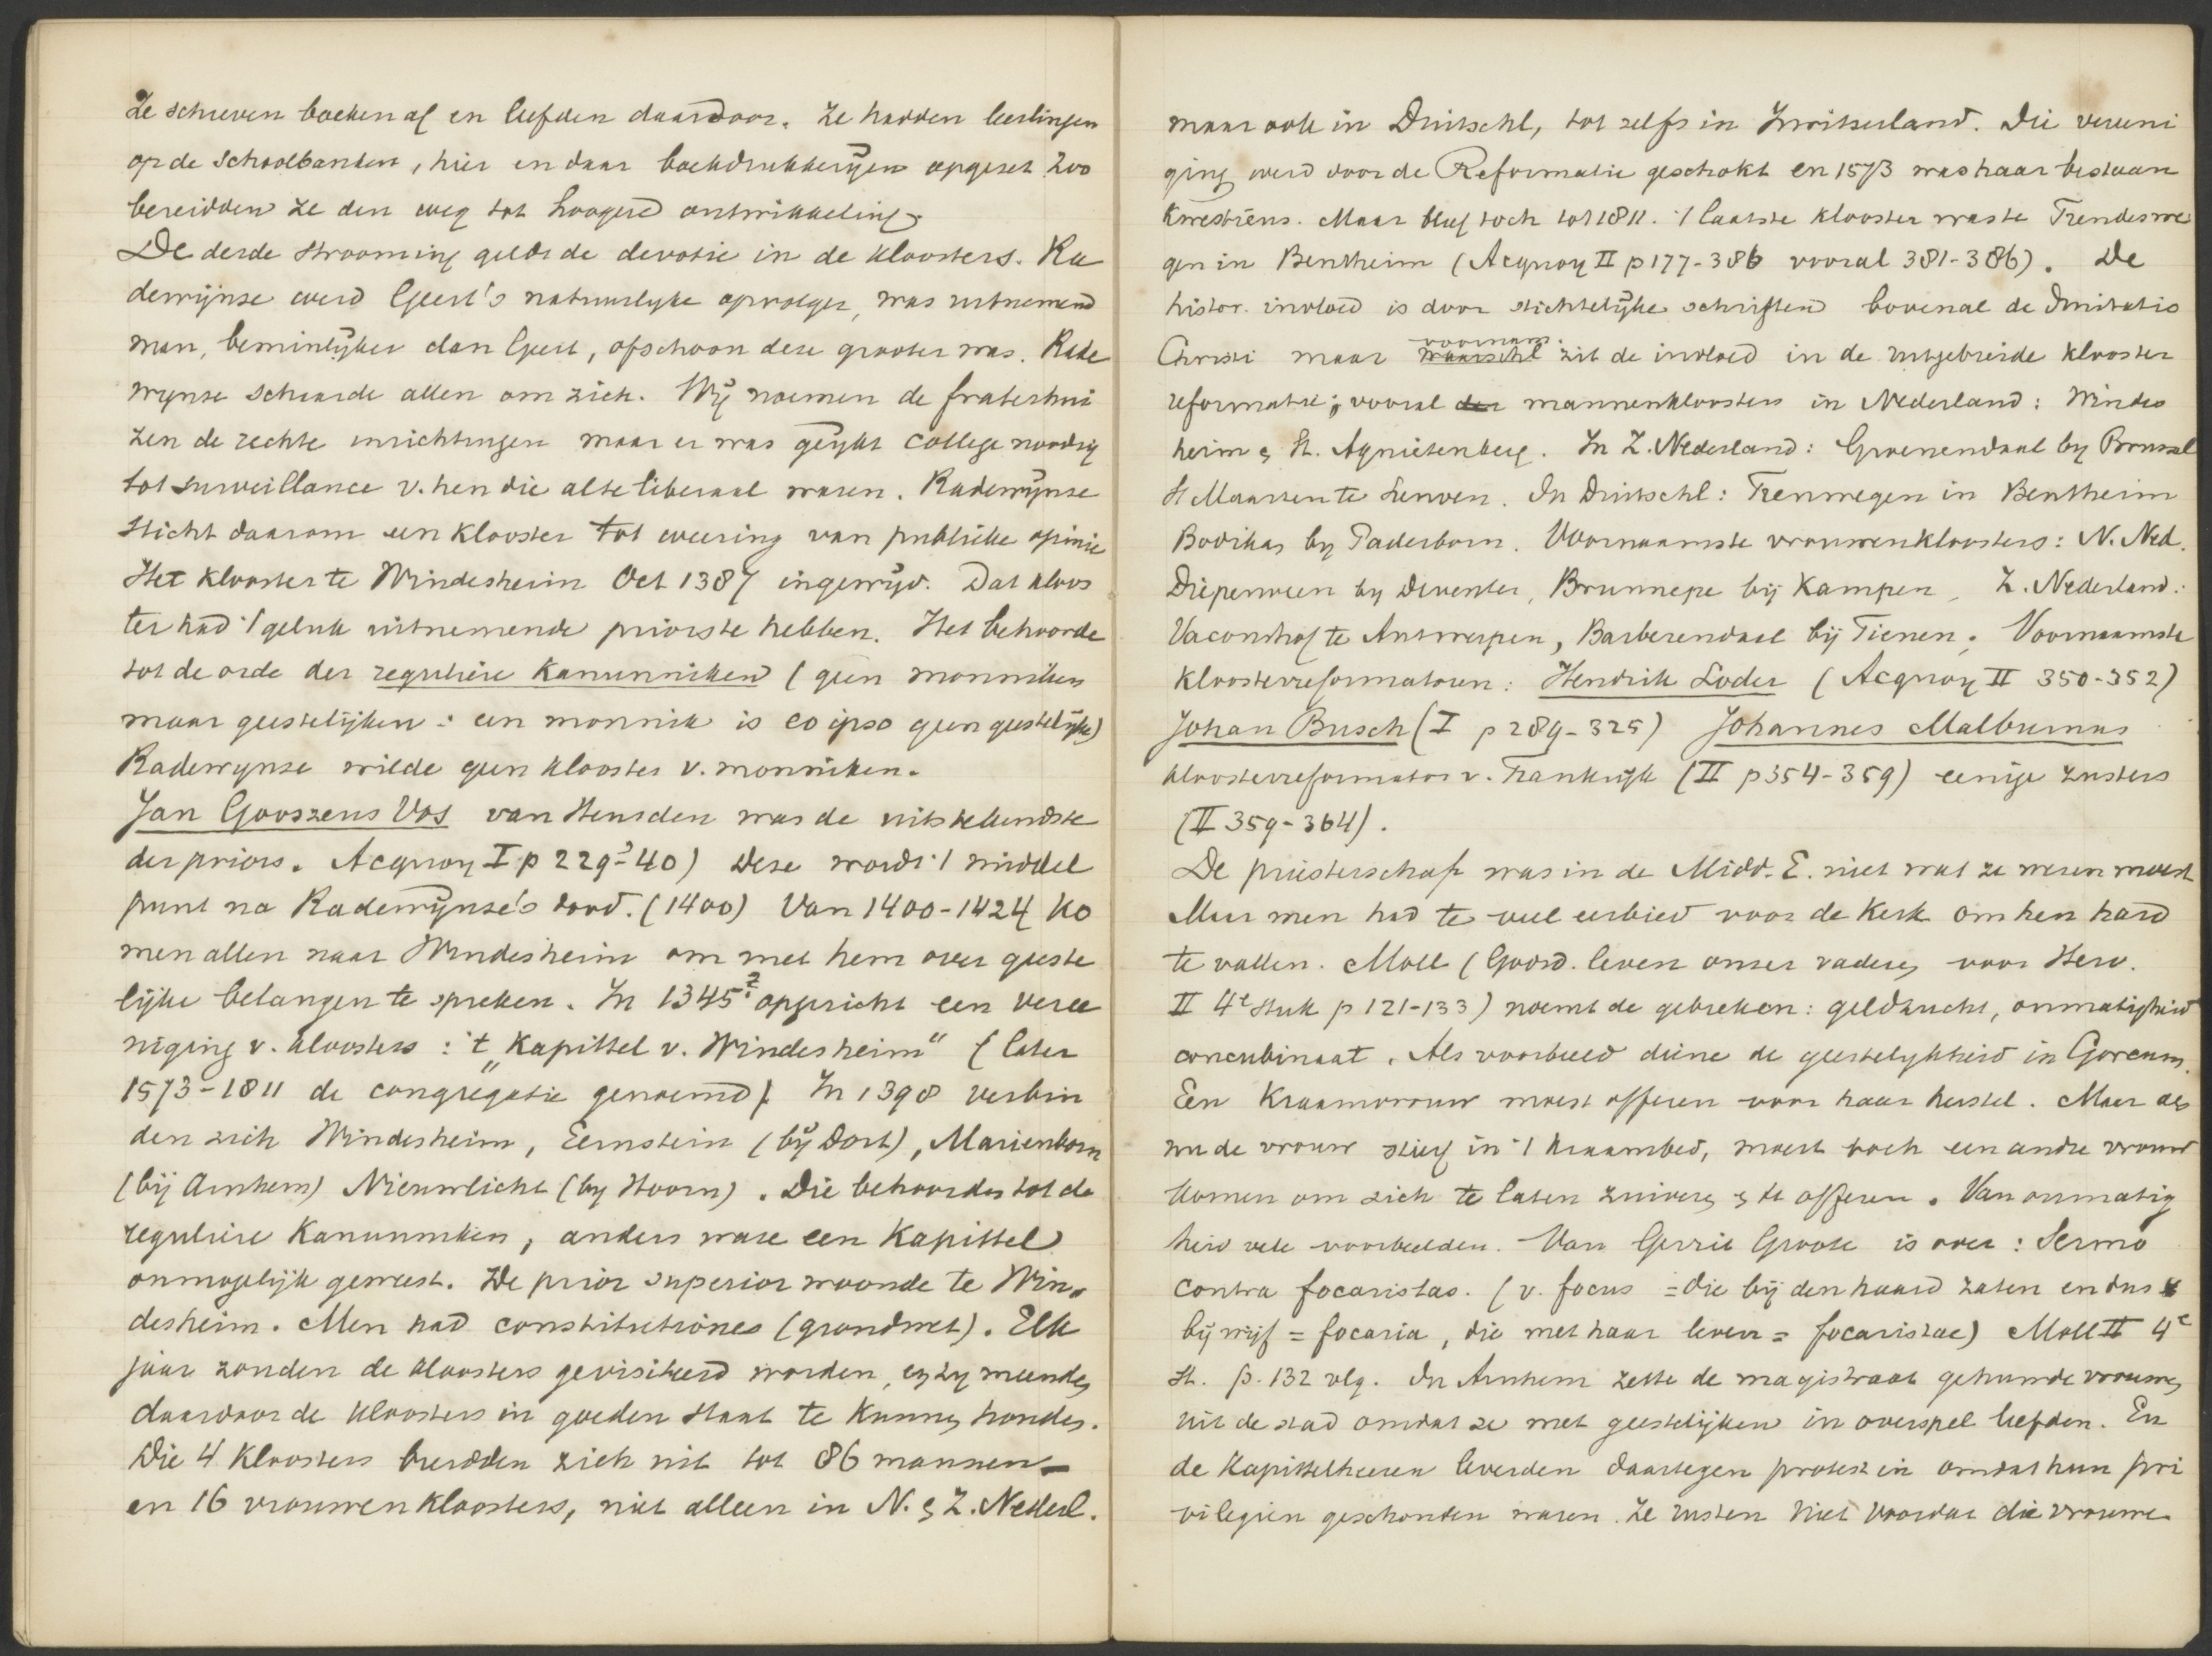 Ze schreven boeken af en leefden daardoor. Ze hadden leerlingen
op de schoolbanken, hier en daar boekdrukkerijen opgezet Zoo
bereidden ze den weg tot hoogere ontwikkeling.
De derde strooming geldt de devotie in de kloosters. Ra
dewijnse werd Geert's natuurlyke opvolger, was uitnemend
man, beminlijker dan Geert, ofschoon deze grooter was. Rade
wynse schaarde allen om zich. Wij noemen de fraterhui
zen de rechte inrichtingen maar er was geijkt college noodig
tot surveillance v. hen die al te liberaal waren. Radewijnse
sticht daarom een klooster tot weering van publieke opinie
Het klooster te Windesheim Oct 1387 ingewijd. Dat kloos
ter had 't geluk uitnemende priors te hebben. Het behoorde
tot de orde der reguliere Kanunniken (geen monniken
maar geestelijken : een monnik is eo ipso geen geestelijke)
Radewynse wilde geen klooster v. monniken.
Jan Goossens Vos van Heusden was de uitstekendste
der priors. Acquoy I p 229-40) Deze wordt 't middel
punt na Radewijnse's dood. (1400) Van 1400-1424 ko
men allen naar Windesheim om met hem over geeste
lijke belangen te spreken. In 1345? opgericht een veree
niging v. kloosters : 't „Kapittel v. Windesheim" (later
1573-1811 de congregatie genoemd). In 1398 verbin
den zich Windesheim, Eemstein (bij Dort), Marienborn
(bij Arnhem) Nieuwlicht (by Hoorn). Die behoorden tot de
reguliere Kanunniken, anders ware een Kapittel
onmogelijk geweest. De prior superior woonde te Win.
desheim. Men had constitutiones (grondwet). Elk
jaar zouden de kloosters gevisiteerd worden, en zy meenden
daardoor de kloosters in goeden staat te kunnen houden.
Die 4 kloosters breidden zich uit tot 86 mannen-
en 16 vrouwenkloosters, niet alleen in N. & Z. Nederl.
maar ook in Duitschl, tot zelfs in Zwitserland. Die vereeni
ging werd door de Reformatie geschokt en 1573 was haar bestaan
kwestieus. Maar bleef toch tot 1811. 't laatste klooster was te Frendeswe
gen in Bentheim (Acquoy II p 177-386 vooral 381-386). De
histor. invloed is door stichtelijke schriften bovenal de Imitatio
Christi maar voornam. waarschl zit de invloed in de uitgebreide klooster
reformatie; vooral der mannenkloosters in Nederland: Windes
heim & St. Agnietenberg. In Z. Nederland: Groenendaal by Brussel
St Maarten te Leuven. In Duitschl: Frenswegen in Bentheim
Bodiken by Paderborn. Voornaamste vrouwenkloosters: N. Ned.
Diepenveen by Deventer, Brunnepe bij Kampen, Z. Nederland:
Faconshof te Antwerpen, Barberendaal bij Tienen. Voornaamste
kloosterreformatoren: Hendrik Loder (Acquoy II 350-352)
Johan Busch (I p 289-325) Johannes Malburnus
kloosterreformator v. Frankrijk (II p 354-359) eenige zusters
(II 359-364).
De priesterschap was in de Midd. E. niet wat ze wezen moest
Maar men had te veel eerbied voor de kerk om hen hard
te vallen. Moll (Godsd. leven onzer vaderen voor Herv.
II 4e stuk p 121-133) noemt de gebreken: geldzucht, onmatigheid
concubinaat. Als voorbeeld diene de geestelykheid in Gorcum.
Een Kraamvrouw moest offeren voor haar herstel. Maar als
nu de vrouw stierf in 't kraambed, moest toch een andre vrouw
komen om zich te laten zuiveren & te offeren. Van onmatig
heid vele voorbeelden. Van Gerrit Groote is over: Sermo
contra focaristas. (v. focus = die bij den haard zaten en dus
bijwijf = focaria, die met haar leven = focaristae) Moll II 4e
st. p. 132 vlg. In Arnhem zette de magistraat gehuwde vrouwen
uit de stad omdat ze met geestelijken in overspel leefden. En
de kapittelheeren leverden daartegen protest in omdat hun pri
vilegien geschonden waren. Ze rusten niet voordat die vrouwe